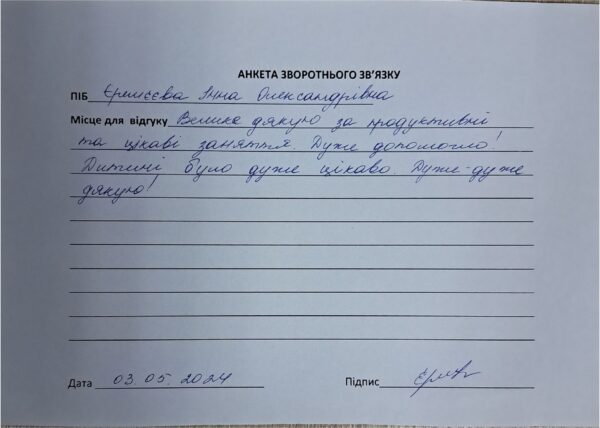 АНКЕТА ЗВОРОТНЬОГО ЗВ'ЯЗКУ
ПІБ Єремєєва Інна Олександрівна
Місце для відгуку Велике дякую за продуктивні
та цікаві заняття. Дуже допомогло!
Дитині було дуже цікаво. Дуже-дуже
дякую!
Дата 03.05.2024 Підпис